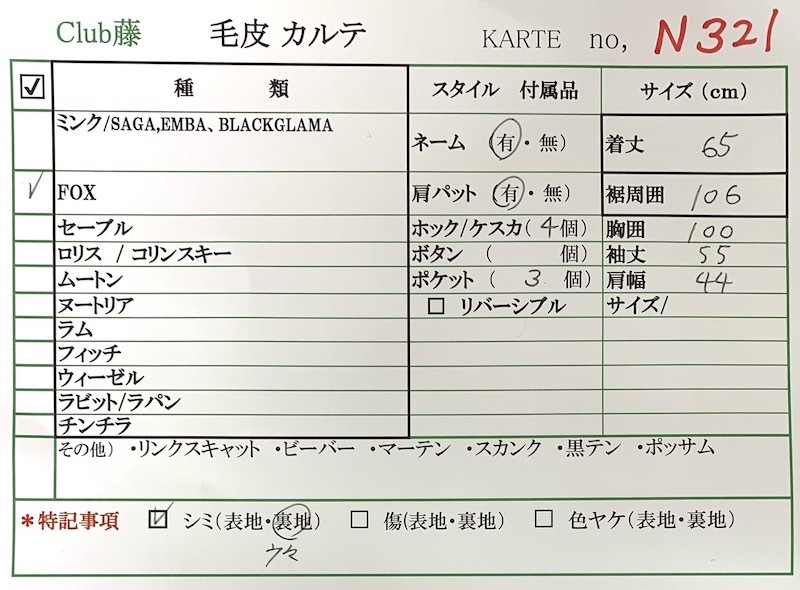 Club藤 毛皮 カルテ KARTE no, N321
☑ 種 類 スタイル 付属品 サイズ (cm)
ミンク/SAGA,EMBA、BLACKGLAMA ネーム (有・無) 着丈 65
✓ FOX 肩パット (有・無) 裾周囲 106
セーブル ホック/ケスカ( 4個) 胸囲 100
ロリス / コリンスキー ボタン ( 個) 袖丈 55
ムートン ポケット ( 3 個) 肩幅 44
ヌートリア □ リバーシブル サイズ/
ラム
フィッチ
ウィーゼル
ラビット/ラパン
チンチラ
その他) ・リンクスキャット ・ビーバー ・マーテン ・スカンク ・黒テン ・ポッサム
*特記事項 ☑ シミ(表地・裏地) □ 傷(表地・裏地) □ 色ヤケ(表地・裏地)